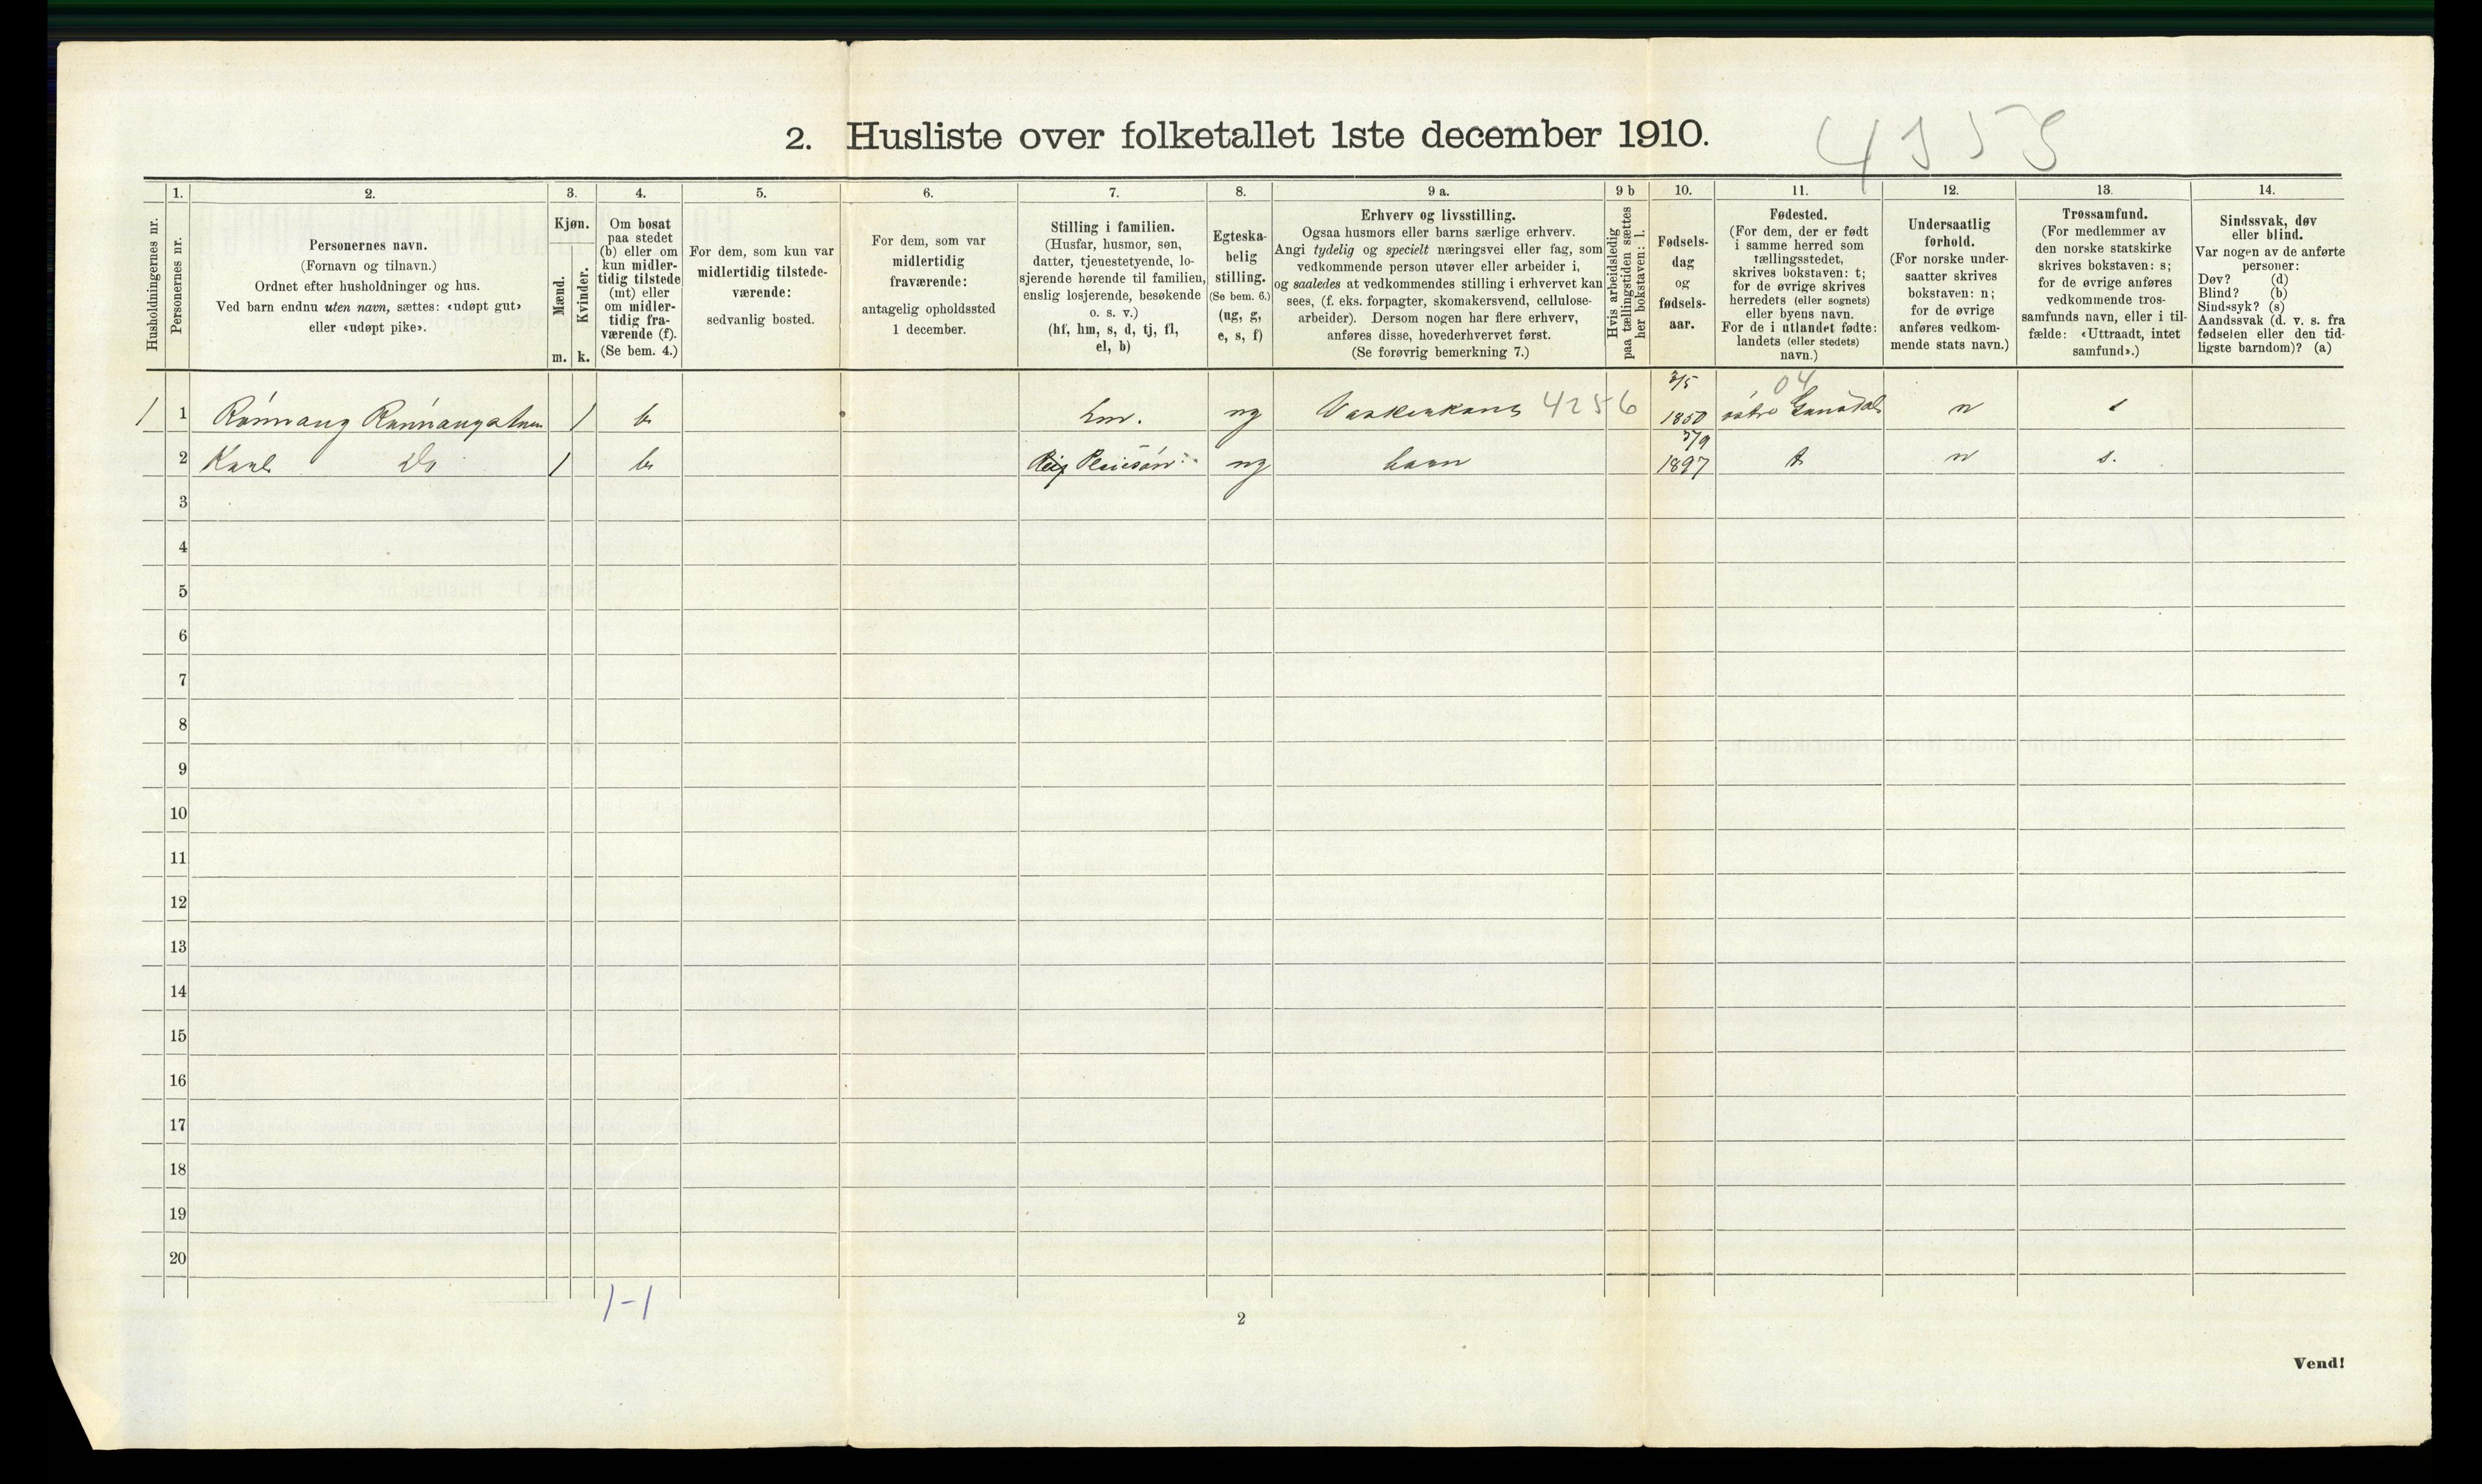 2. Husliste over folketallet 1ste december 1910.
Husholdningernes nr.
1.
Personernes nr.
2.
Personernes navn.
(Fornavn og tilnavn.)
Ordnet efter husholdninger og hus.
Ved barn endnu uten navn, sættes: «udøpt gut»
eller «udøpt pike».
3.
Kjøn.
Mænd.
Kvinder.
m. k.
4.
Om bosat
paa stedet
(b) eller om
kun midler-
tidig tilstede
(mt) eller
om midler-
tidig fra-
værende (f).
(Se bem. 4.)
5.
For dem, som kun var
midlertidig tilstede-
værende:
sedvanlig bosted.
6.
For dem, som var
midlertidig
fraværende:
antagelig opholdssted
1 december.
7.
Stilling i familien.
(Husfar, husmor, søn,
datter, tjenestetyende, lo-
sjerende hørende til familien,
enslig losjerende, besøkende
o. s. v.)
(hf, hm, s, d, tj, fl,
el, b)
8.
Egteska-
belig
stilling.
(Se bem. 6.)
(ug, g,
e, s, f)
9 a.
Erhverv og livsstilling.
Ogsaa husmors eller barns særlige erhverv.
Angi tydelig og specielt næringsvei eller fag, som
vedkommende person utøver eller arbeider i,
og saaledes at vedkommendes stilling i erhvervet kan
sees, (f. eks. forpagter, skomakersvend, cellulose-
arbeider). Dersom nogen har flere erhverv,
anføres disse, hovederhvervet først.
(Se forøvrig bemerkning 7.)
9 b
Hvis arbeidsledig
paa tællingstiden sættes
her bokstaven: l.
10.
Fødsels-
dag
og
fødsels-
aar.
11.
Fødested.
(For dem, der er født
i samme herred som
tællingsstedet,
skrives bokstaven: t;
for de øvrige skrives
herredets (eller sognets)
eller byens navn.
For de i utlandet fødte:
landets (eller stedets)
navn.)
12.
Undersaatlig
forhold.
(For norske under-
saatter skrives
bokstaven: n;
for de øvrige
anføres vedkom-
mende stats navn.)
13.
Trossamfund.
(For medlemmer av
den norske statskirke
skrives bokstaven: s;
for de øvrige anføres
vedkommende tros-
samfunds navn, eller i til-
fælde: «Uttraadt, intet
samfund».)
14.
Sindssvak, døv
eller blind.
Var nogen av de anførte
personer:
Døv? (d)
Blind? (b)
Sindssyk? (s)
Aandssvak (d. v. s. fra
fødselen eller den tid-
ligste barndom)? (a)
1 1 Rønnaug 1 b hm. ug 4256 3/5 1850 04 n s
2 Karl Do 1 b ug barn 5/9 1897 t n s.
3
4
5
6
7
8
9
10
11
12
13
14
15
16
17
18
19
20
1-1
2
Vend!